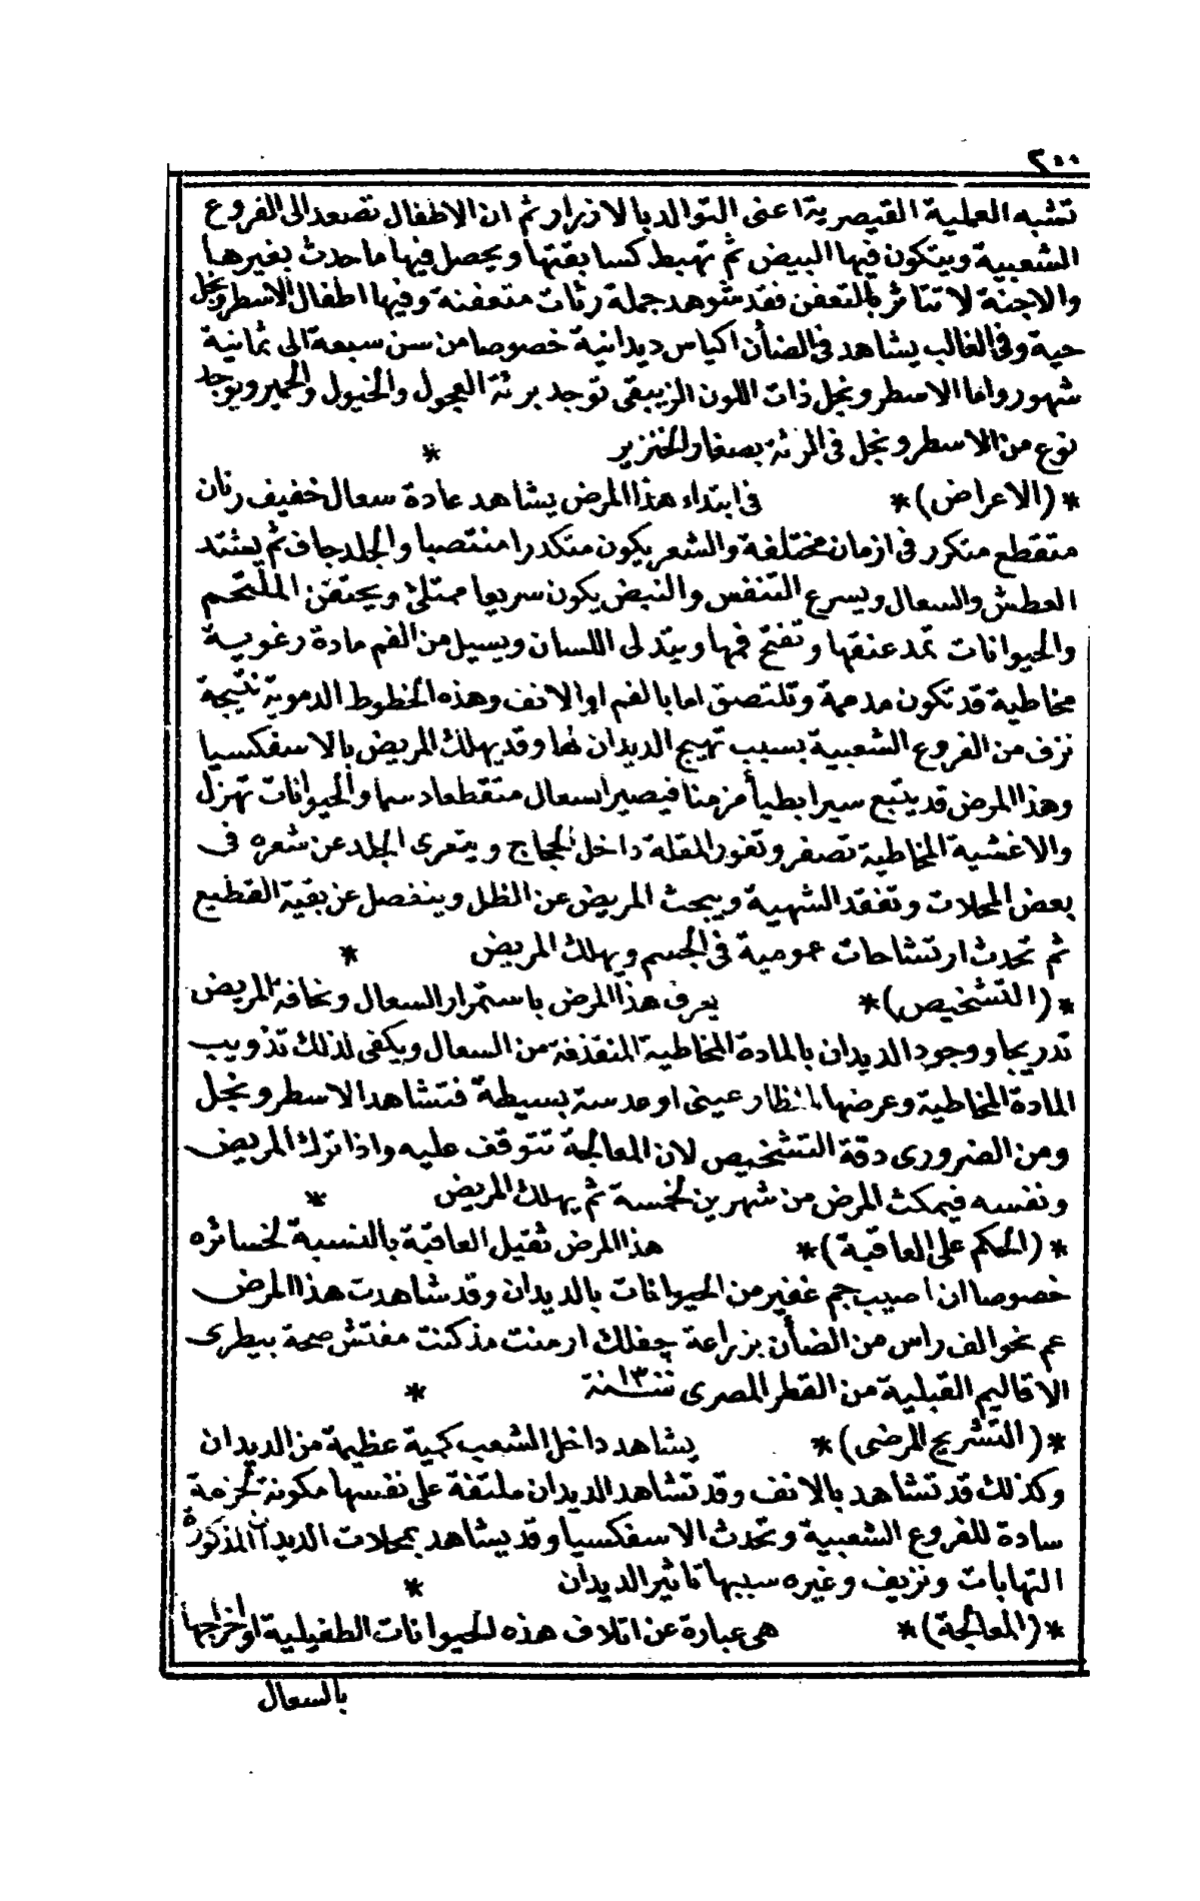 ٢٠٠
تشبه العملية القيصرية اعنى التوالد بالازرار ثم ان الاطفال تصعد الى الفروع
الشعبية ويتكون فيها البيض ثم تهبط كسابقتها ويحصل فيها ما حدث بغيرها
والاجنة لا تتاثر بالتعفن فقد شوهد جملة رئات متعفنة وفيها اطفال الاسطرونجل
حية وفى الغالب يشاهد فى الضأن اكياس ديدانية خصوصا من سن سبعة الى ثمانية
شهور واما الاسطرونجل ذات اللون الزيبقى توجد برئة العجول والخيول والحمير ويوجد
نوع من الاسطرونجل فى الرئة بصغار الخنزير *
*(الاعراض)* فى ابتداء هذا المرض يشاهد عادة سعال خفيف رنان
متقطع متكرر فى ازمان مختلفة والشعر يكون متكدرا منتصبا والجلد جاف ثم يشتد
العطش والسعال ويسرع التنفس والنبض يكون سريعا ممتلئ ويحتقن الملتحم
والحيوانات تمد عنقها وتفتح فمها ويتدلى اللسان ويسيل من الفم مادة رغوية
مخاطية قد تكون مدممة وتلتصق اما بالفم او الانف وهذه الخطوط الدموية نتيجة
نزف من الفروع الشعبية بسبب تهيج الديدان لها وقد يهلك المريض بالاسفكسيا
وهذا المرض قد يتبع سيرا بطيأ مزمنا فيصير السعال متقطعا دسما والحيوانات تهزل
والاغشية المخاطية تصفر وتغور المقلة داخل الحجاج ويتعرى الجلد عن شعره فى
بعض المحلات وتفقد الشهية ويبحث المريض عن الظل وينفصل عن بقية القطيع
ثم تحدث ارتشاحات عمومية فى الجسم ويهلك المريض *
*(التشخيص)* يعرف هذا المرض باستمرار السعال ونحافة المريض
تدريجا ووجود الديدان بالمادة المخاطية المنقذفة من السعال ويكفى لذلك تذويب
المادة المخاطية وعرضها لمنظار عينى او عدسة بسيطة فتشاهد الاسطرونجل
ومن الضرورى دقة التشخيص لان المعالجة تتوقف عليه واذا ترك المريض
ونفسه فيمكث المرض من شهرين لخمسة ثم يهلك المريض *
*(الحكم على العاقبة)* هذا المرض ثقيل العاقبة بالنسبة لخسائره
خصوصا ان اصيب جم غفير من الحيوانات بالديدان وقد شاهدت هذا المرض
عم نحو الف راس من الضأن بزراعة چفلك ارمنت مذ كنت مفتش صحة بيطرى
الاقاليم القبلية من القطر المصرى سنة *
*(التشريح المرضى)* يشاهد داخل الشعب كمية عظيمة من الديدان
وكذلك قد تشاهد بالانف وقد تشاهد الديدان ملتفة على نفسها مكونة لحزمة
سادة للفروع الشعبية وتحدث الاسفكسيا وقد يشاهد بمحلات الديدان المذكورة
التهابات ونزيف وغيره سببها تاثير الديدان *
*(المعالجة)* هى عبارة عن اتلاف هذه الحيوانات الطفيلية او اخراجها
بالسعال